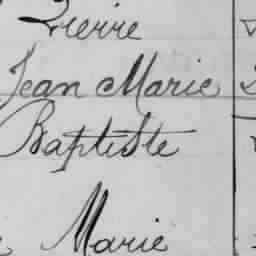 Pierre
Jean Marie
Baptiste
Marie